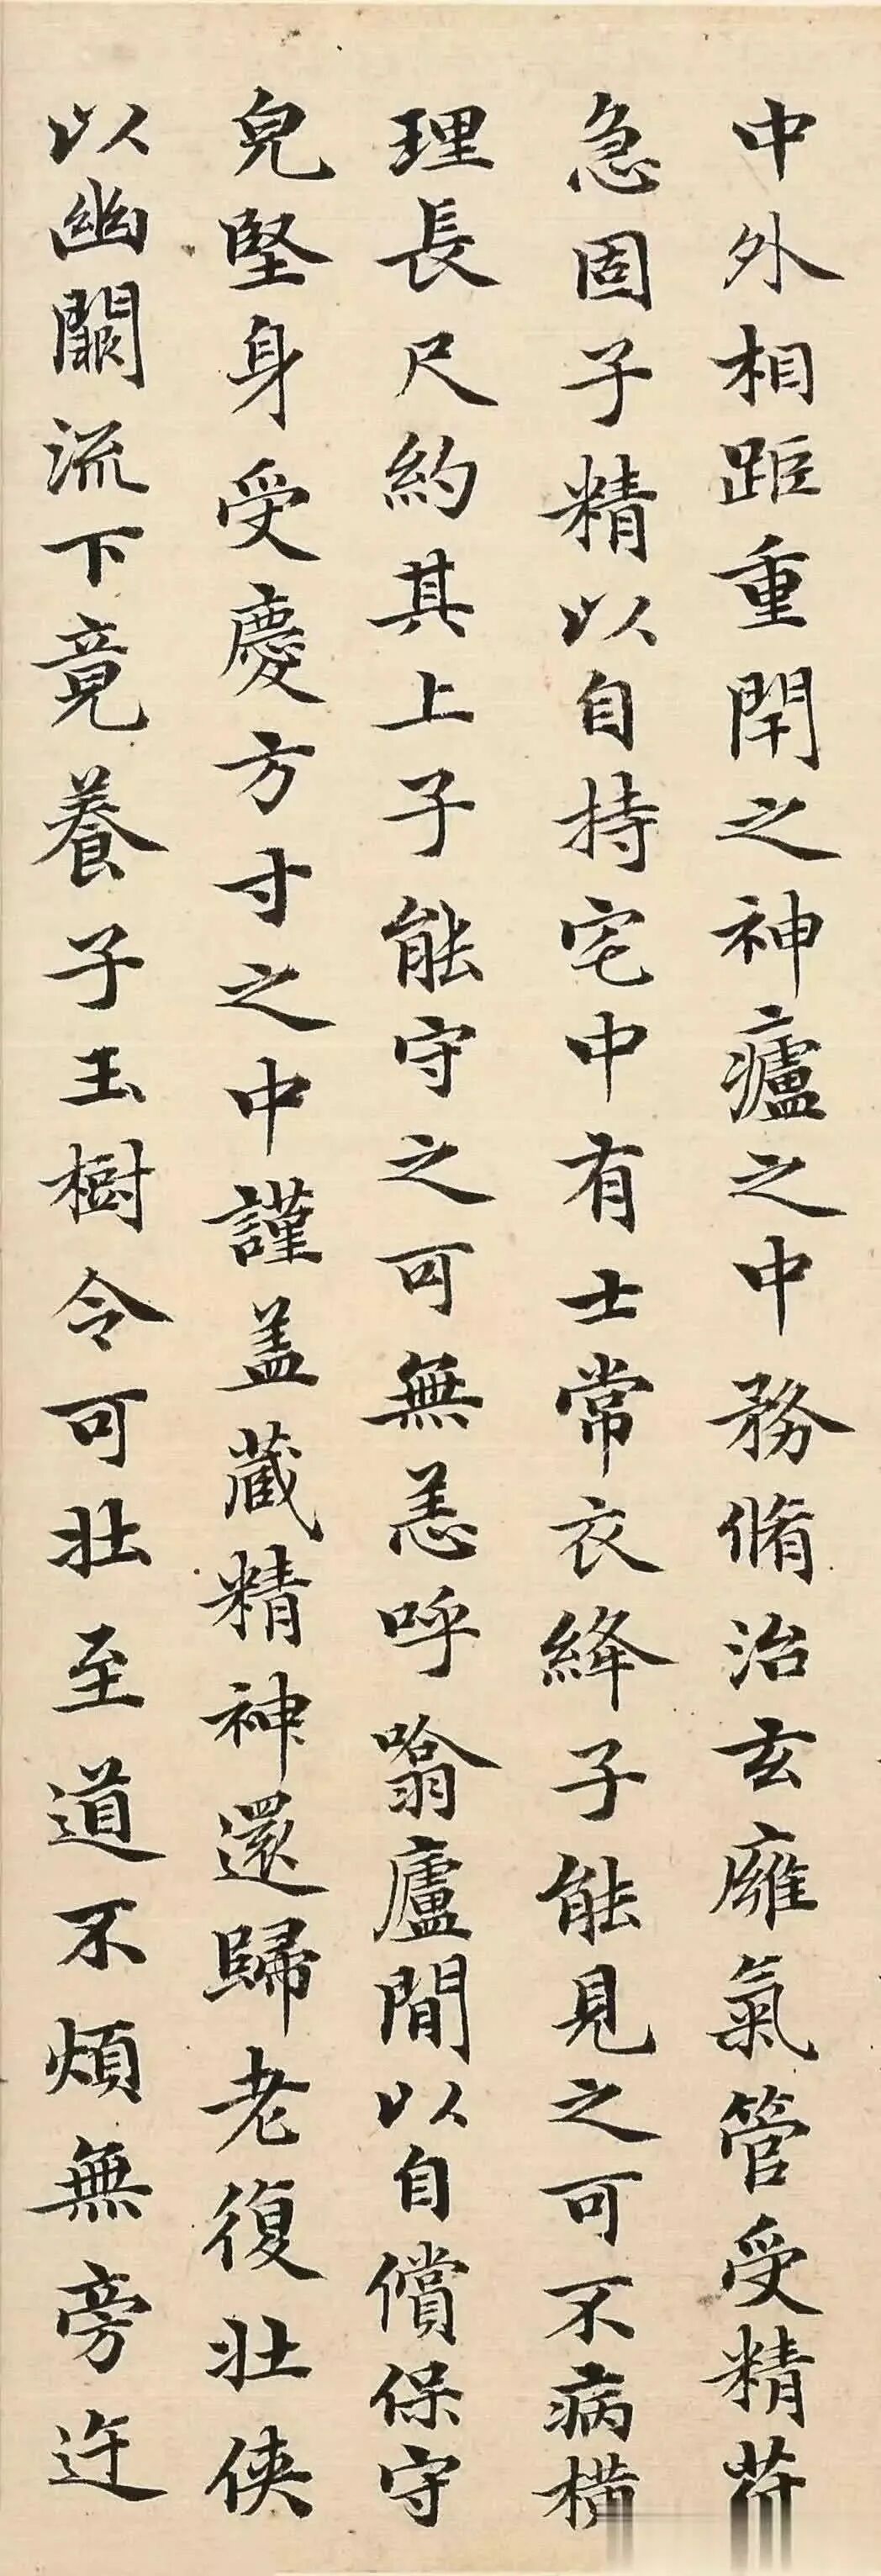 中外相距重閇之神廬之中務脩治玄廱氣管受精符
急固子精以自持宅中有士常衣絳子能見之可不病橫
理長尺約其上子能守之可無恙呼噏廬間以自償保守
皃堅身受慶方寸之中謹盖藏精神還歸老復壯俠
以幽闕流下竟養子玉樹令可壯至道不煩無旁迕